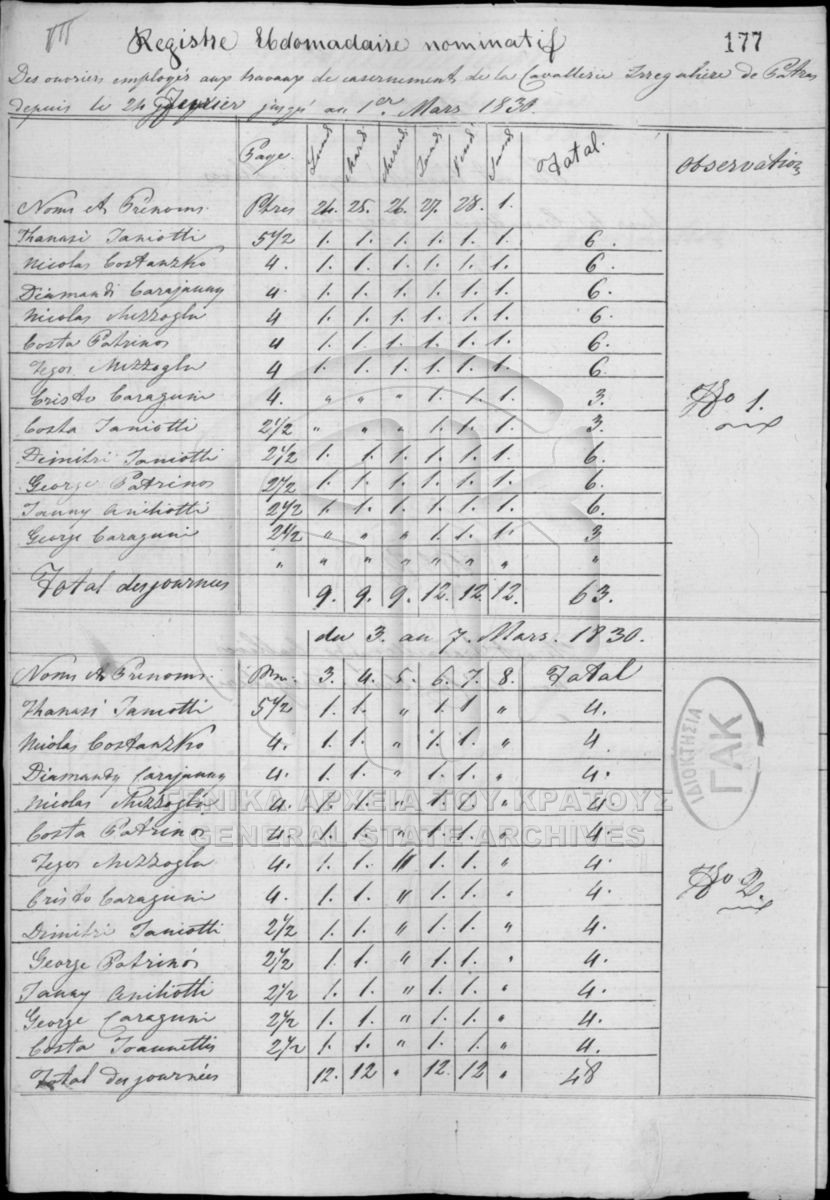 VII
177
Registre Ebdomadaire nominatif
Des ouvriers employés aux travaux de casernement de la Cavallerie Irregulière de Patras
depuis le 24 Fevrier jusqu' au 1er. Mars 1830.
Page. Lund Mard Mercred Jeud Vend Samd Total. Observation
Noms et Prenoms. Ptres 24. 25. 26. 27. 28. 1.
Thanasi Janiotti 5 1/2 1. 1. 1. 1. 1. 1. 6.
Nicolas Costanzko 4. 1. 1. 1. 1. 1. 1. 6.
Diamandi Carajanny 4. 1. 1. 1. 1. 1. 1. 6.
Nicolas Mezzoglu 4 1. 1. 1. 1. 1. 1. 6.
Costa Patrinos 4 1. 1. 1. 1. 1. 1. 6.
Zegos Mezzoglu 4 1. 1. 1. 1. 1. 1. 6
Cristo Caraguni 4. " " " 1. 1. 1. 3.
No 1.
Costa Janiotti 2 1/2 " " " 1. 1. 1. 3.
Dimitri Janiotti 2 1/2 1. 1. 1. 1. 1. 1. 6.
George Patrinos 2 1/2 1. 1. 1. 1. 1. 1. 6.
Janny Aniliotti 2 1/2 1. 1. 1. 1. 1. 1. 6.
George Caraguni 2 1/2 " " " 1. 1. 1. 3
" " " " " " " "
Total des journees 9. 9. 9. 12. 12. 12. 63.
du 3. au 7. Mars. 1830.
Noms et Prenoms. 3. 4. 5. 6. 7. 8. Total
Thanasi Janiotti 5 1/2 1. 1. " 1. 1 " 4.
Nicolas Costanzko 4. 1. 1. " 1. 1. " 4
Diamandy Carajanny 4. 1. 1. " 1. 1. " 4.
Nicolas Mezzoglu 4. 1. 1. " 1. 1. " 4
Costa Patrinos 4 1. 1. " 1. 1. " 4
Zegos Mezzoglu 4. 1. 1. " 1. 1. " 4.
Cristo Caraguni 4. 1. 1. " 1. 1. " 4.
No 2.
Dimitri Janiotti 2 1/2 1. 1. " 1. 1. " 4.
George Patrinos 2 1/2 1. 1. " 1. 1. " 4.
Janny Aniliotti 2 1/2 1. 1. " 1. 1. " 4.
George Caraguni 2 1/2 1. 1. " 1. 1. " 4.
Costa Joannettis 2 1/2 1. 1. " 1. 1. " 4.
Total des journées 12. 12 " 12. 12 " 48
ΙΔΙΟΚΤΗΣΙΑ
ΓΑΚ
ΓΕΝΙΚΑ ΑΡΧΕΙΑ ΤΟΥ ΚΡΑΤΟΥΣ
GENERAL STATE ARCHIVES